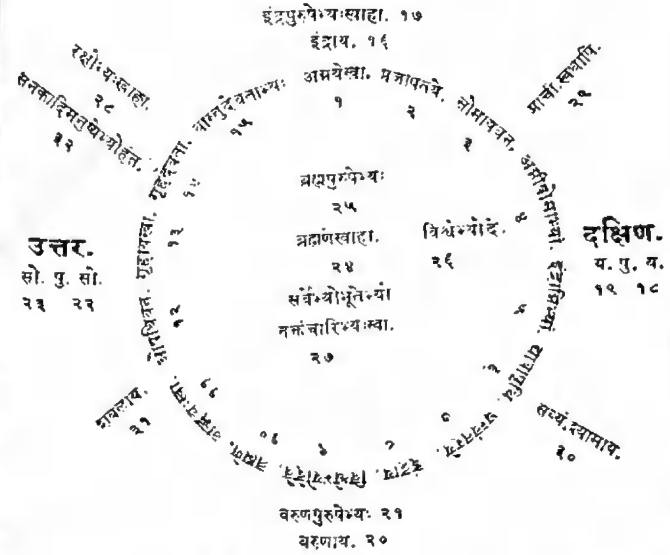 इंद्रपुरुषेभ्यःस्वाहा. १७
इंद्राय. १६
रक्षोभ्यःस्वाहा.
२८
सनकादिमनुष्येभ्योहंत.
३२
प्राची.स्वधापि.
२९
अग्नयेस्वा.
१
प्रजापतये.
२
सोमायवन.
३
अग्नीषोमाभ्यां.
४
इंद्राग्निभ्यां.
५
६
७
इंद्राय.
८
विश्वेभ्योदेवे.
९
ब्रह्मणे.
१०
११
१२
गृह्यायस्वा.
१३
गृहदेवता.
१४
वास्तुदेवताभ्यः
१५
ब्रह्मपुरुषेभ्यः
२५
ब्रह्मणेस्वाहा.
२४
विश्वेभ्योदे.
२६
सर्वेभ्योभूतेभ्यो
नक्तंचारिभ्यःस्वा.
२७
उत्तर.
सो. पु. सो.
२३ २२
दक्षिण.
य. पु. य.
१९ १८
शबलाय.
३१
सव्यं.श्यामाय.
३०
वरुणपुरुषेभ्यः २१
वरुणाय. २०